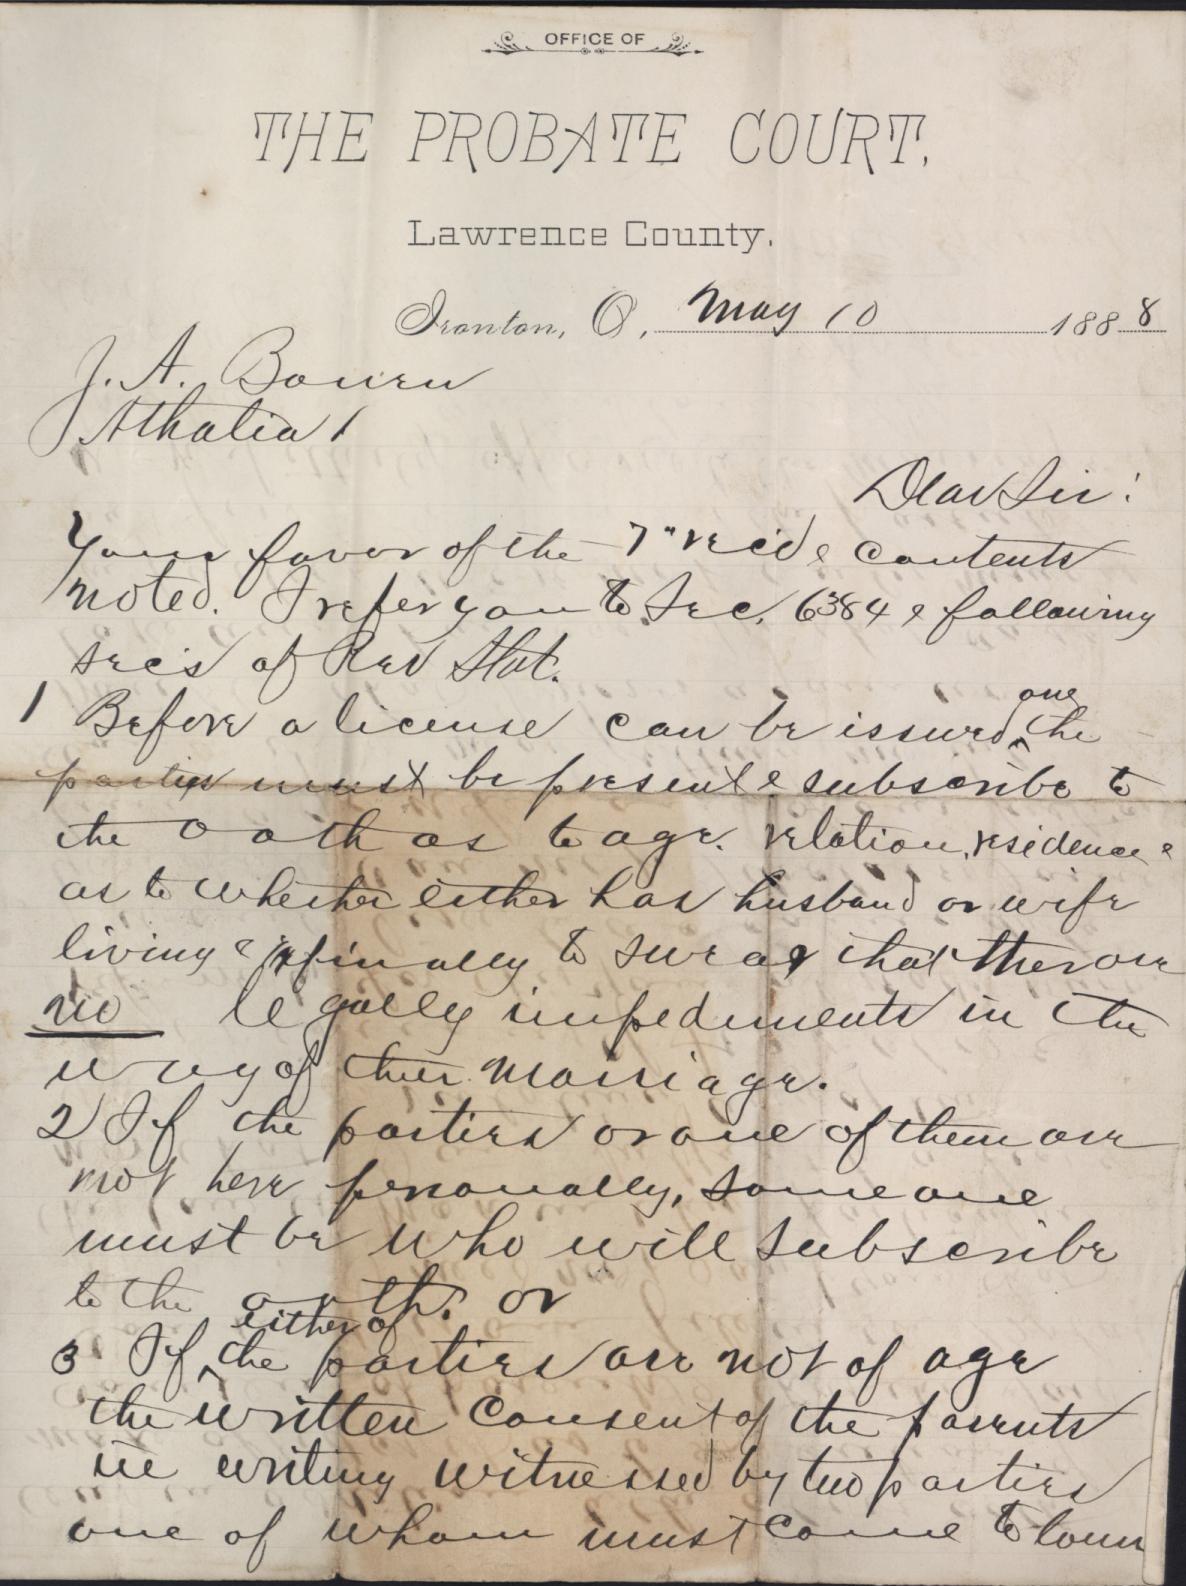 OFFICE OF
THE PROBATE COURT.
Lawrence County.
Ironton, O, May 10 1888
J. A. Bowen
Athalia
Dear Sir:
Your favor of the 7" rec'd & contents
noted. I refer you to Sec. 6384 & following
sec's of Rev Stat.
1 Before a license can be issued one the
parties must be present & subscribe to
the Oath as to age. relation, residence &
as to whether either has husband or wife
living & finally to swear that there are
no legally impediments in the
way of their marriage.
2) If the parties or one of them are
not here personally, someone
must be who will subscribe
to the oath. or
3 If either of the parties are not of age
the written consent of the parents
in writing witnessed by two parties
one of whom must come to town